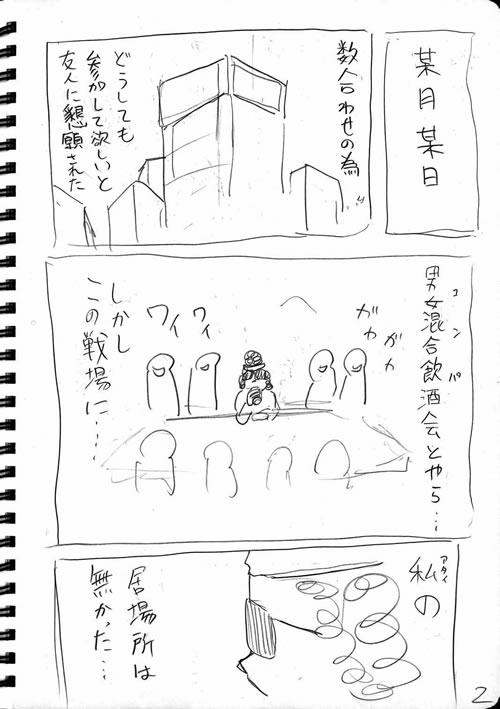 某月某日
数合わせの為
どうしても
参加して欲しいと
友人に懇願された
コンパ
男女混合飲酒会とやら…
ガヤ
ガヤ
ワイ
ワイ
しかし
この戦場に…
アタイ
私の
居場所は
無かった…
2